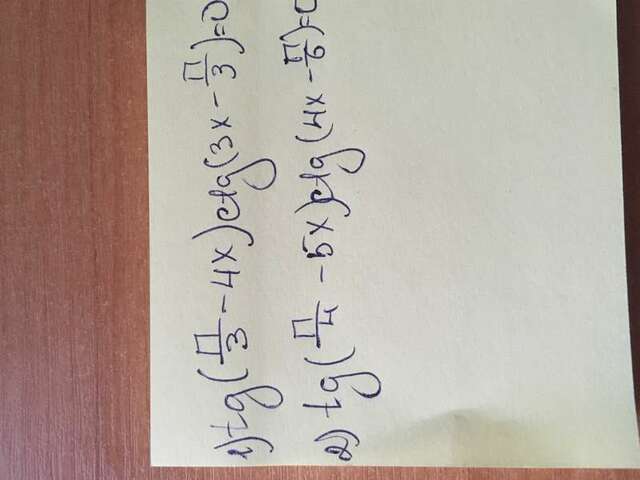 1) tg(π/3 - 4x)ctg(3x - π/3)=0
2) tg(π/4 - 5x)ctg(4x - π/6)=0